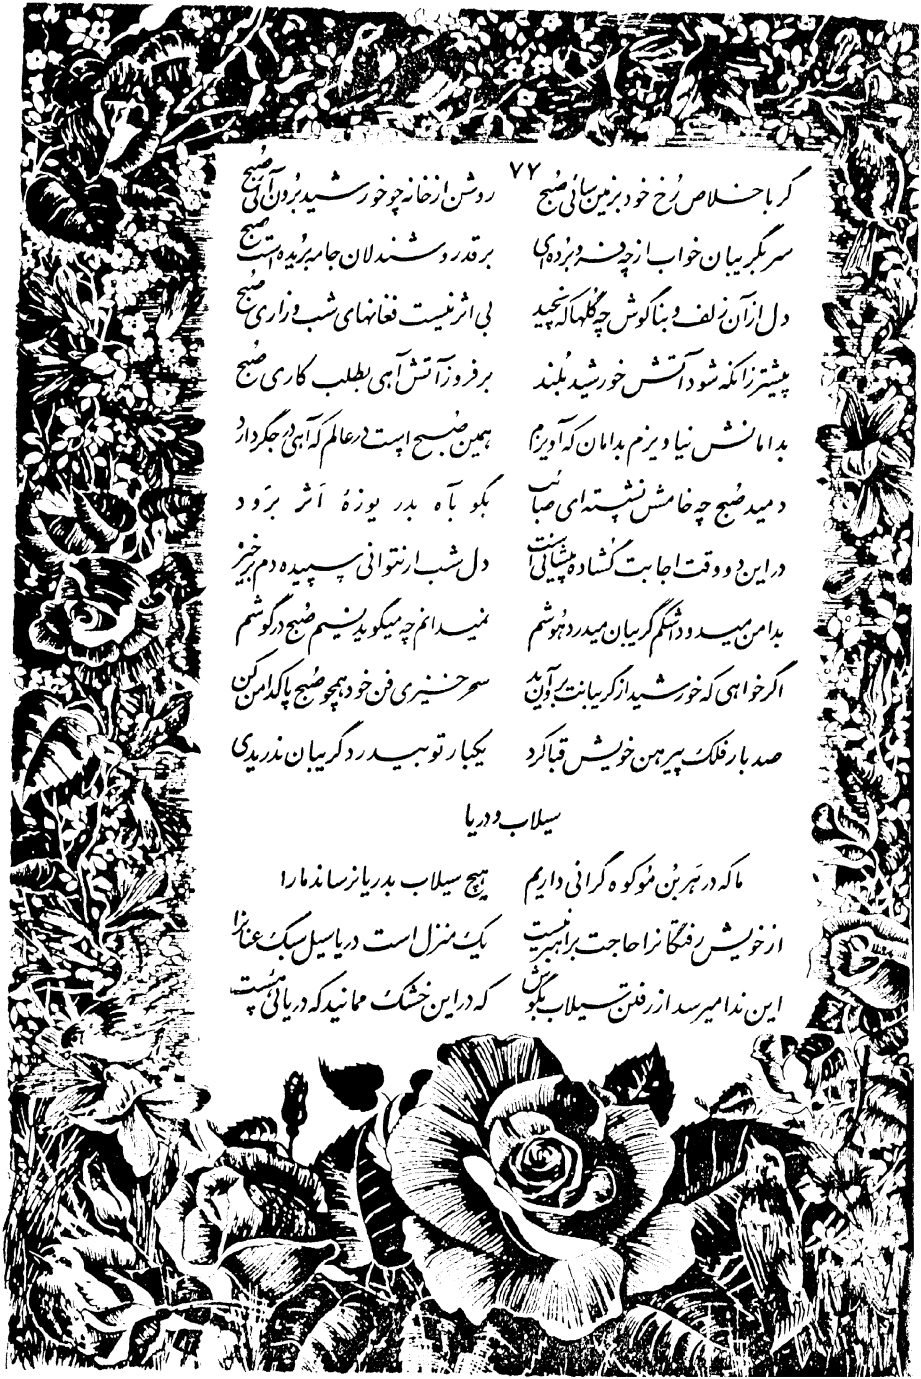 ۷۷
گر باخلاص رُخ خود بزمین سائی صُبح روشن از خانه چو خورشید بُرون آئی صُبح
سر بگریبان خواب از چه فرو بُرده‌ای بر قدر روشندلان جامه بُریده است صبح
دل از آن زلف و بناگوش چه گُلها که نچید بی اثر نیست فغانهای شب و زاری صُبح
پیشتر زانکه شود آتش خورشید بُلند بر فروز آتش آهی بطلب کاری صُبح
بدامانش نیاویزم بدامان که آویزم همین صُبح است در عالم که آهی در جگر دارد
دمید صُبح چه خامش نشسته‌ای صائب بگو بآه بدریوزهٔ اَثر برَود
در این دو وقت اجابت گشاده پیشانی است دل شب ار نتوانی سپیده دم برخیز
بدامن میدود اشگم گریبان میدرد هُوشم نمیدانم چه میگوید نسیم صُبح در گوشم
اگر خواهی که خورشید از گریبانت برون آید سحرخیزی فن خود همچو صُبح پاکدامن کن
صد بار فلک پیرهن خویش قبا کرد یکبار تو بیدرد گریبان ندریدی
سیلاب و دریا
ما که در هَر بُن مُو کوه گرانی داریم هیچ سیلاب بدریا نرساند ما را
از خویش رفتگانرا حاجت براهبر نیست یک منزل است دریا سیل سبک عنانرا
این ندا میرسد از رفتن سیلاب بگوش که در این خشک ممانید که دریائی هست